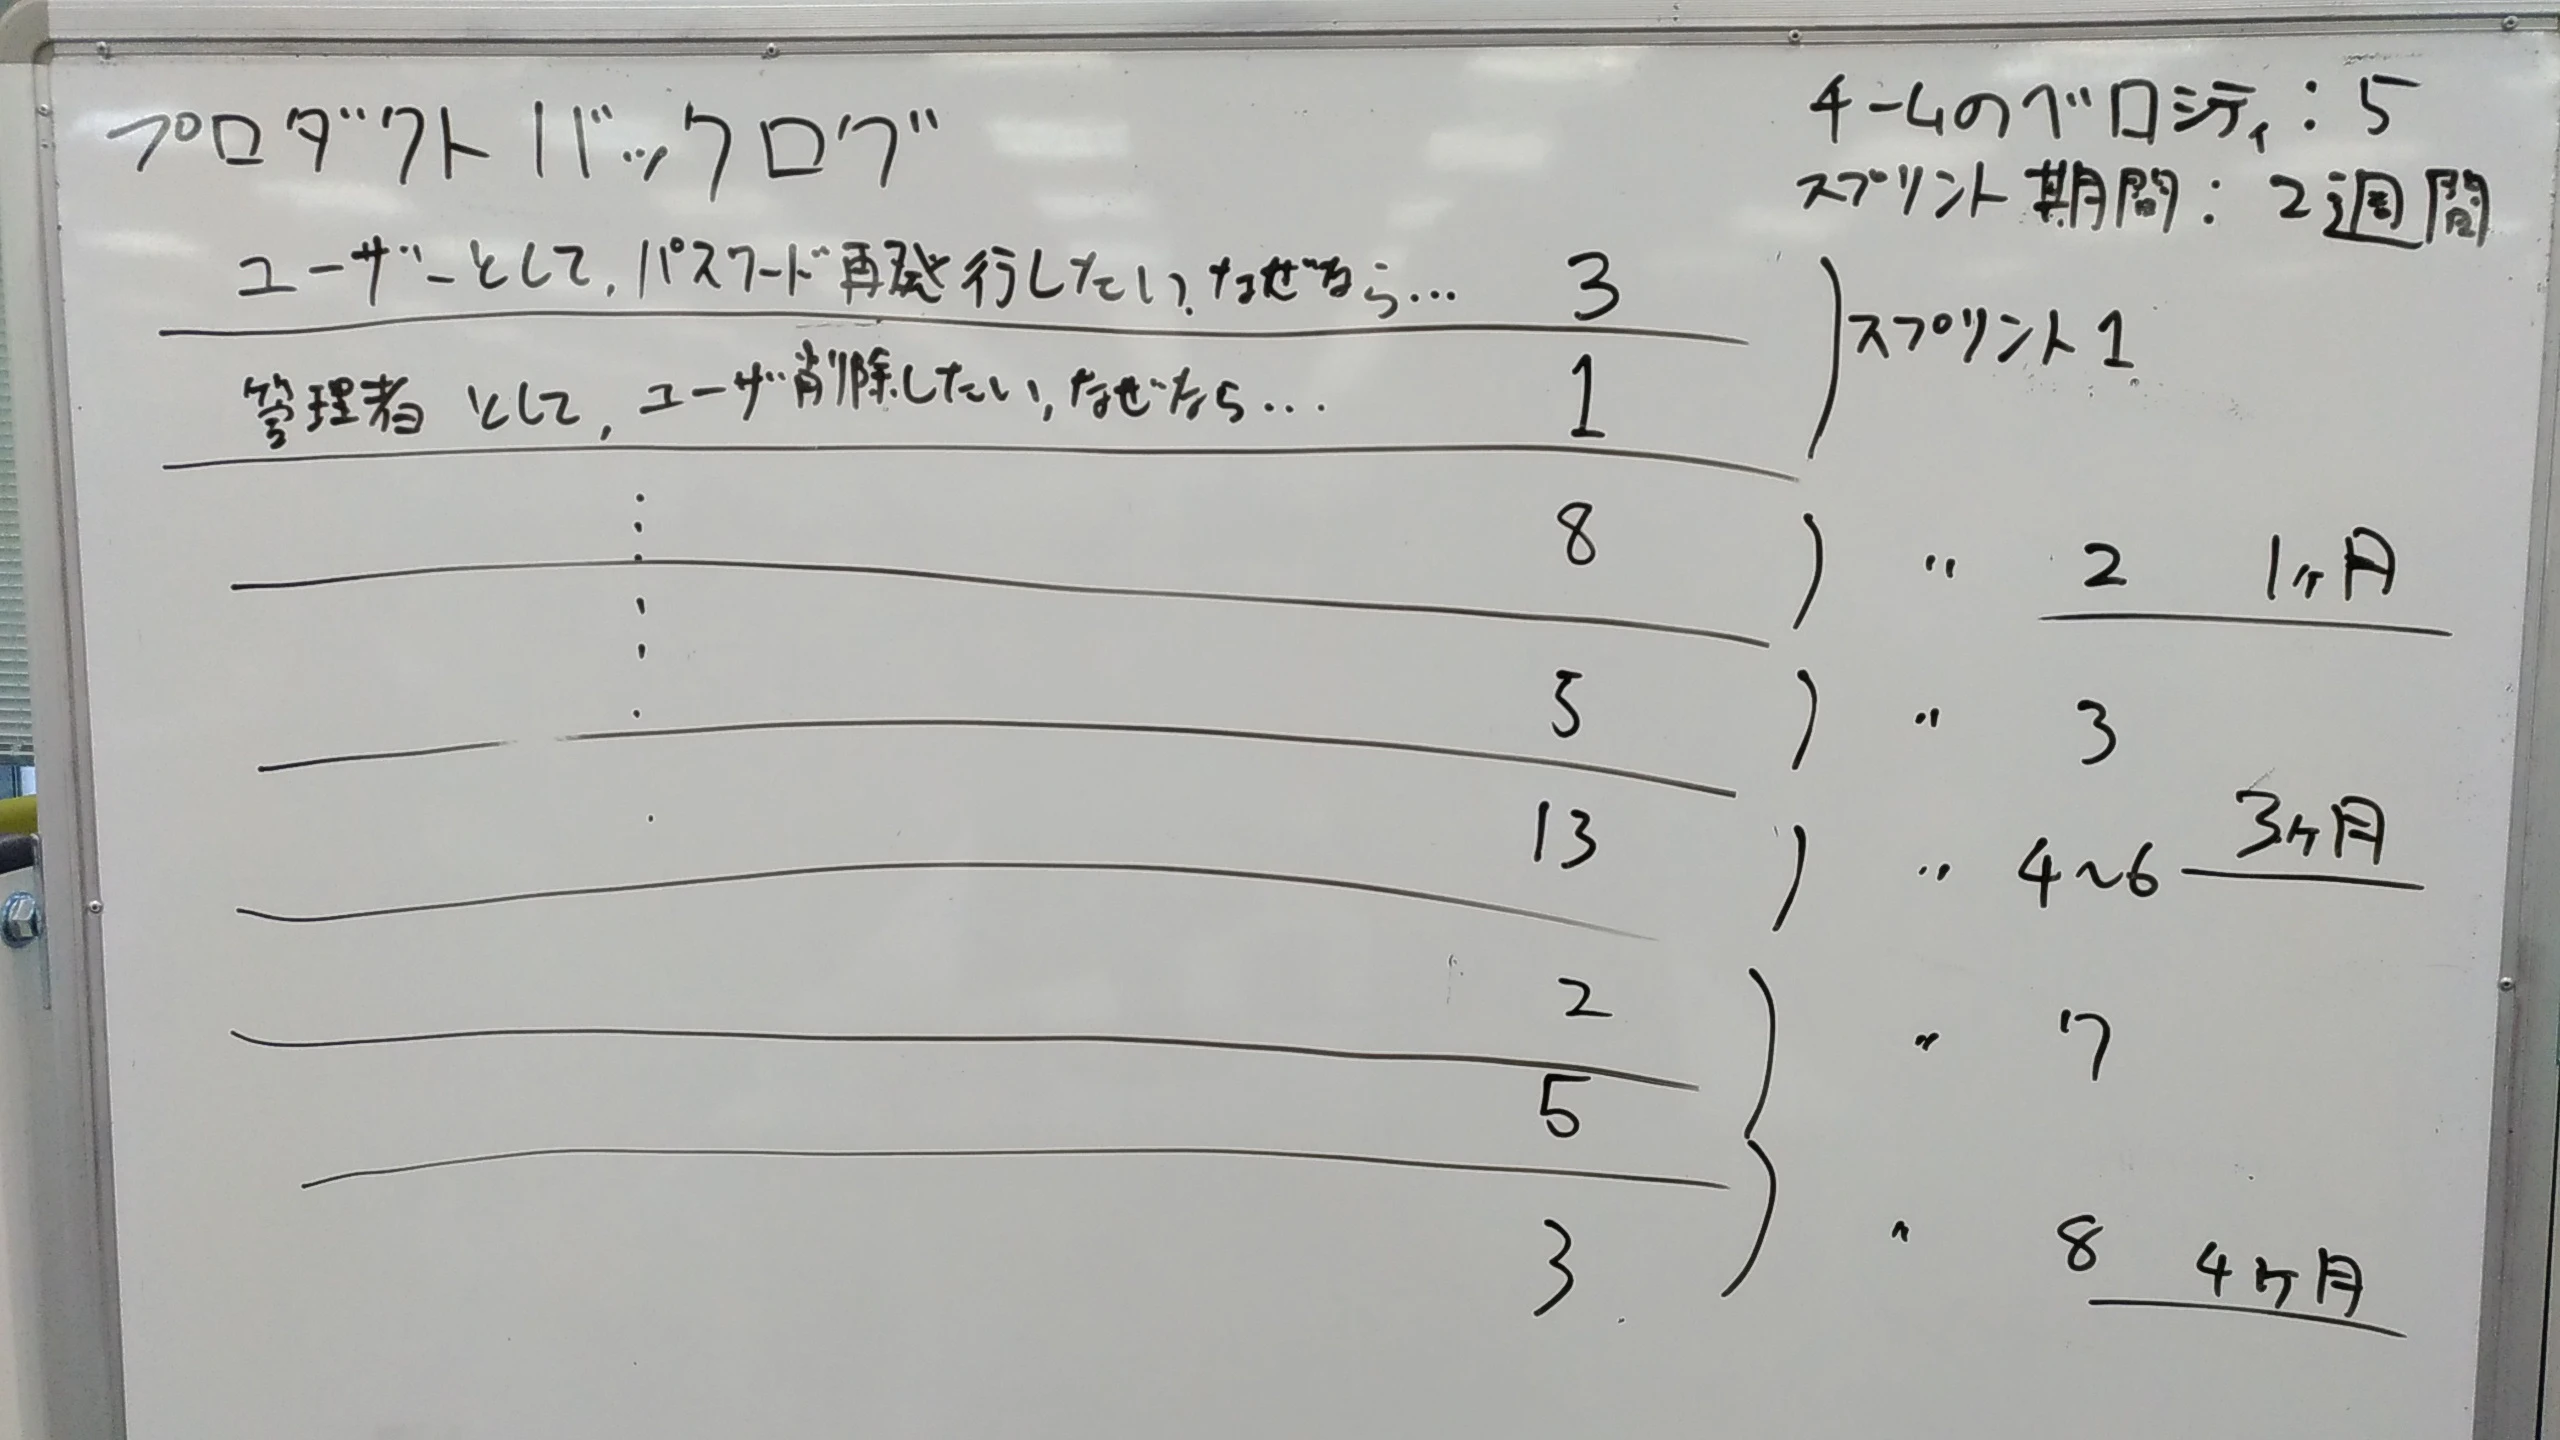 プロダクトバックログ
チームのベロシティ：5
スプリント期間：2週間
ユーザーとして，パスワード再発行したい，なぜなら… 3
スプリント1
管理者として，ユーザ削除したい，なぜなら… 1
8 〃 2 1ヶ月
5 〃 3
13 〃 4〜6 3ヶ月
2 〃 7
5
3 〃 8 4ヶ月